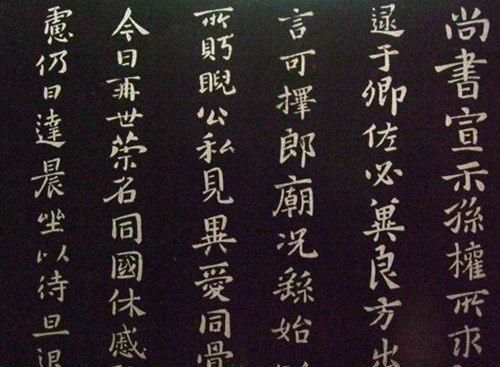 尚書宣示孫權所求
逮于卿佐必冀良方出
言可擇郎廟況繇始
所眄睨公私見異愛同骨
今日再世榮名同國休慼
慮仍日達晨坐以待旦退